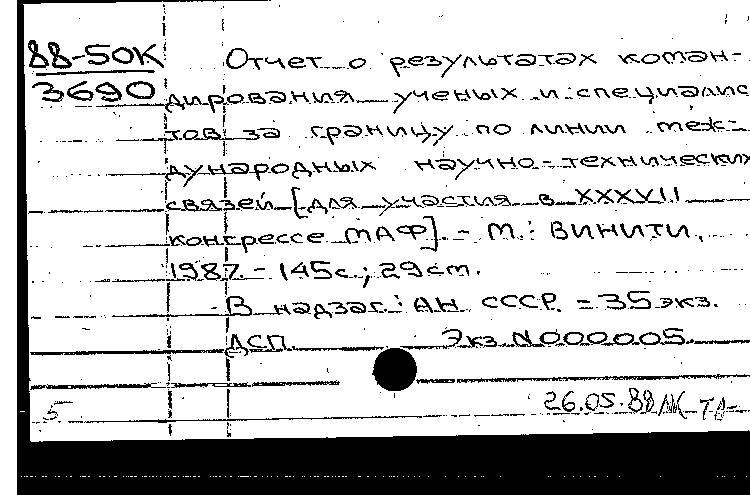 88-50К
3690
Отчет о результатах коман-
дирования ученых и специалис
тов за границу по линии меж-
дународных научно-технических
связей [для участия в XXXVII
конгрессе МАФ]. - М.: ВИНИТИ,
1987. - 145с.; 29см.
В надзаг.: АН СССР. = 35 экз.
ДСП. Экз. N000005.
5
26.05.88